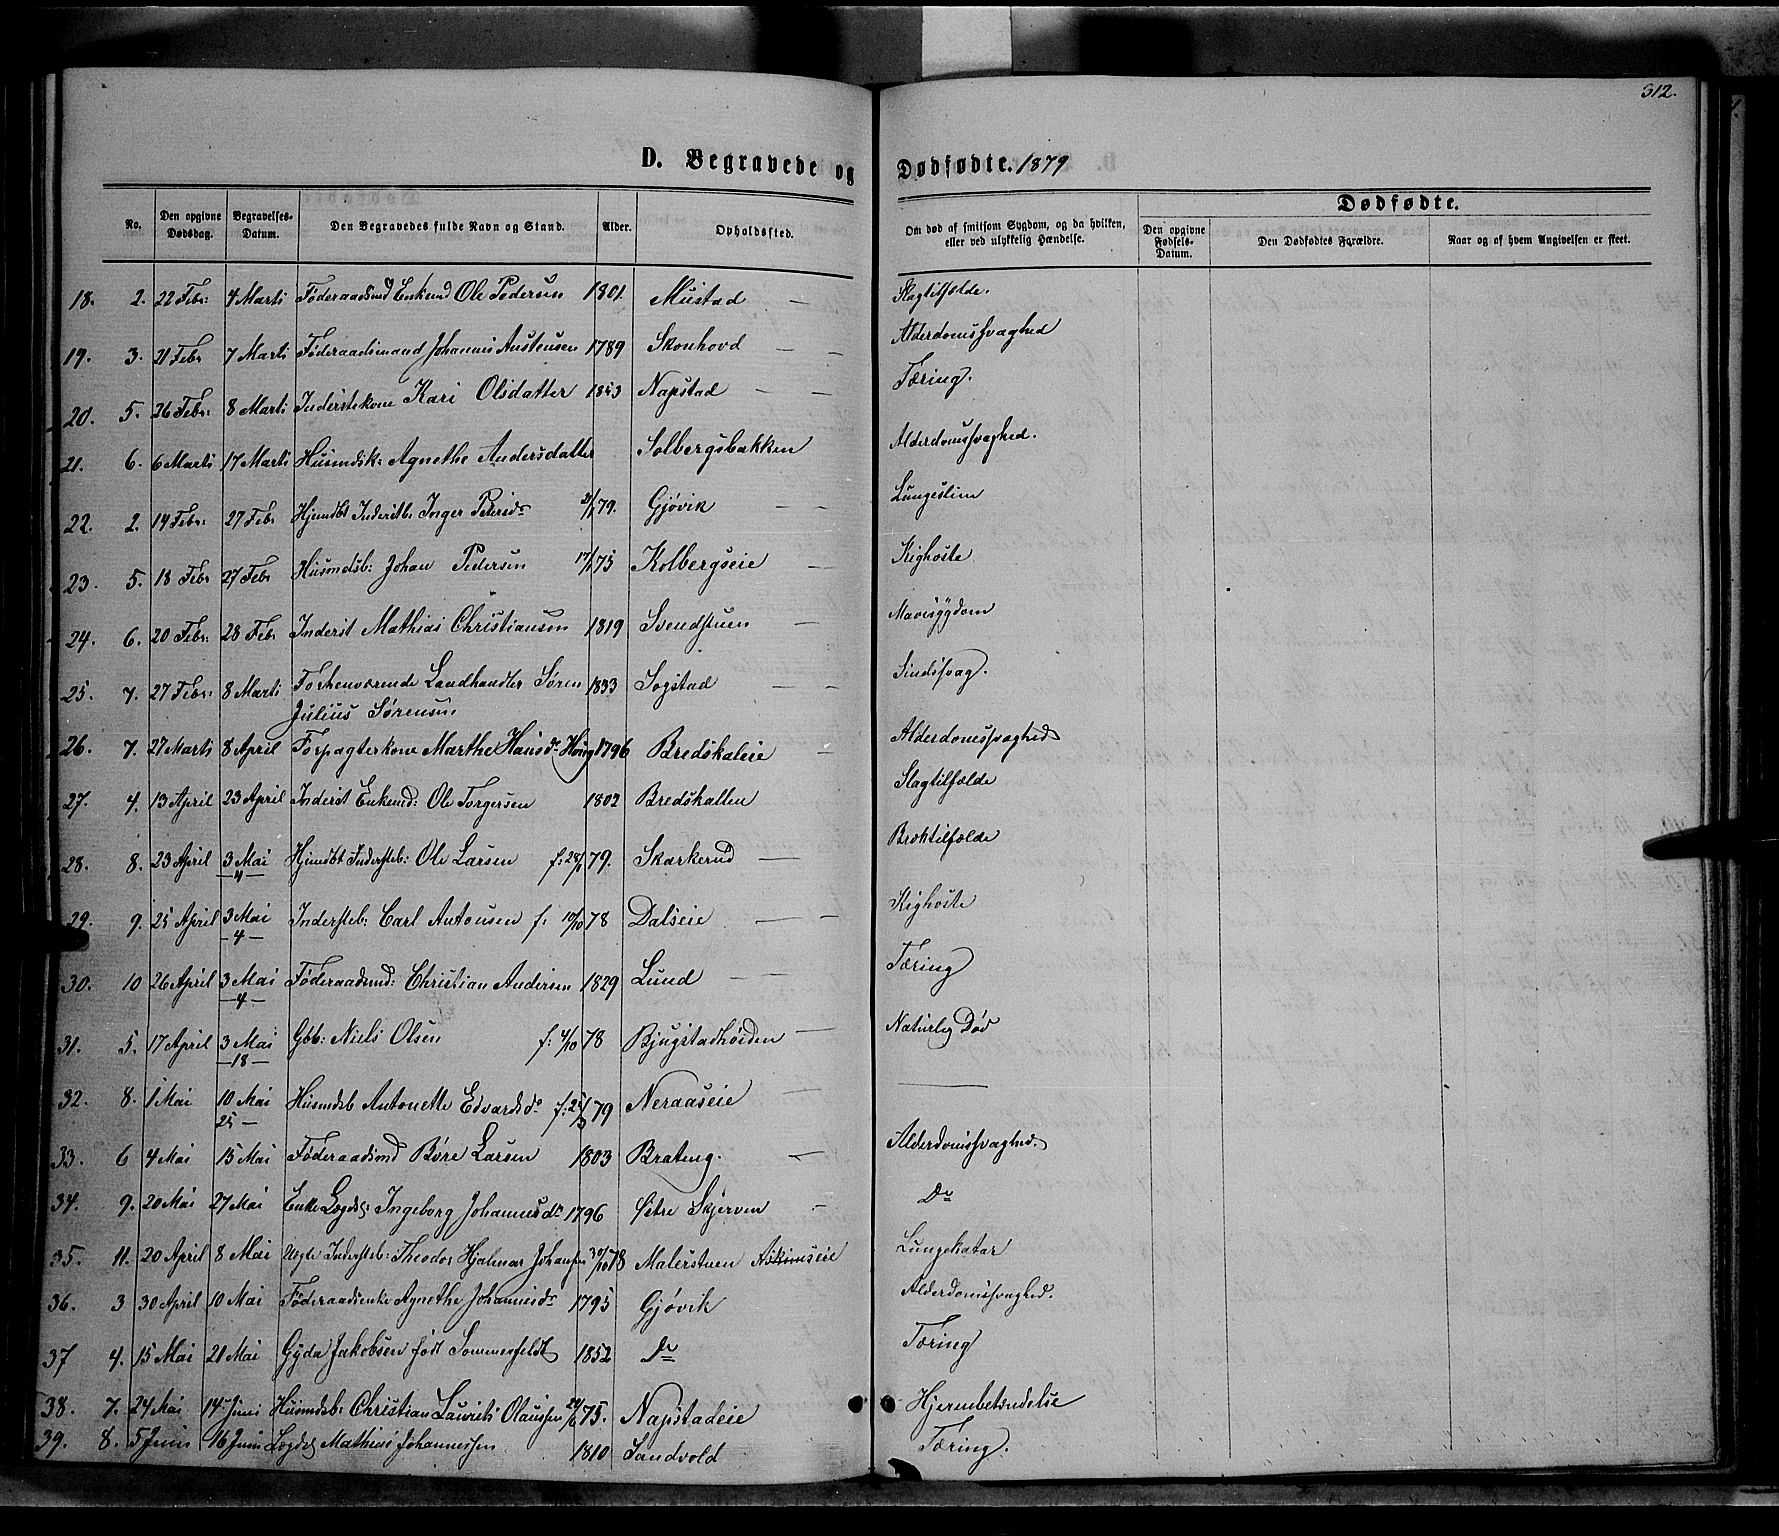 312.
D. Begravede og Dødfødte. 1879
Dødfødte.
No. Den opgivne Dødsdag. Begravelses-Datum. Den Begravedes fulde Navn og Stand. Alder. Opholdssted. Om død af smitsom Sygdom, og da hvilken, eller ved ulykkelig Hændelse. Den opgivne Fødsels-Datum. Den Dødfødtes Forældre. Naar og af hvem Angivelsen er skeet.
18. 2. 22 Febr: 4 Marti Føderaadsmd Enkemd Ole Pedersen 1801. Mustad — Slagtilfælde.
19. 3. 21 Febr 7 Marti Føderaadsmand Johannes Austensen 1789 Skonhovd — — Alderdomssvaghed
20. 5. 26 Febr: 8 Marti Inderstekone Kari Olsdatter 1843 Napstad — — Tæring.
21. 6. 6 Marti 17 Marti Husmdsk: Agnethe Andersdatter Solbergsbakken Alderdomssvaghed.
22. 2. 14 Febr: 27 Febr Hjemdbt Inderstb: Inger Petersdr 79. Gjøvik — — Lungeslim
23. 5. 18 Febr 27 Febr Husmdsb: Johan Pedersen 75 Kolbergseie — Kighoste
24. 6. 20 Febr: 28 Febr Inderst Mathias Christiansen 1819 Svendstuen — Mavesygdom
25. 7. 27 Febr: 8 Marti Forhenværende Landhandler Søren 1833 Sogstad — — Sindssvag.
Julius Sørensen
26. 7. 27 Marti 8 April Forpagterkone Marthe Hansdr Houg 1796 Bredskaleie — Alderdomssvaghed
27. 4. 13 April 23 April Inderst Enkemd: Ole Torgersen 1802 Bredskallen Slagtilfælde
28. 8. 23 April 3 Mai Hjemdbt Indersteb: Ole Larsen f: 79. Skarkerud — Broktilfælde
— 4 —
29. 9. 25 April 3 Mai Indersteb: Carl Antonsen f: 10/10 78 Dalseie — — Kighoste
— 4 —
30. 10 26 April 3 Mai Føderaadsmd: Christian Andersen 1829 Lund — — Tæring
— 4 —
31. 5. 17 April 3 Mai Gbb: Niels Olsen f: 4/10 78 Bjugstadhøiden — Naturlig Død
— 18 —
32. 8. 1 Mai 10 Mai Husmdsb Antonette Edvardsdr f: 25/3 79 Neraaseie — ———
25 —
33. 6 4 Mai 15 Mai Føderaadsmd Børe Larsen 1803 Brateng. — Alderdomssvaghed.
34. 9. 20 Mai 27 Mai Enke Lægdsl: Ingeborg Johannesdr 1796 Østre Skjerven — Do
35. 11. 20 April 8 Mai Uægte Indersteb: Theodor Hjalmar Johansen 30/10 78 Malerstuen Askimseie Lungekatar
36. 3 30 April 10 Mai Føderaadsenke Agnethe Johannesdr 1795 Gjøvik Alderdomssvaghed.
37 4. 15 Mai 21 Mai Gyda Jakobsen født Sommerfeldt 1852 Do Tæring
38. 7. 24 Mai 14 Juni Husmdsb: Christian Laurits Olaussen 75. Napstadeie Hjernebetændelse
39. 8. 5 Juni 16 Juni Lægdsl Mathias Johannessen 1810 Sandvold Tæring.